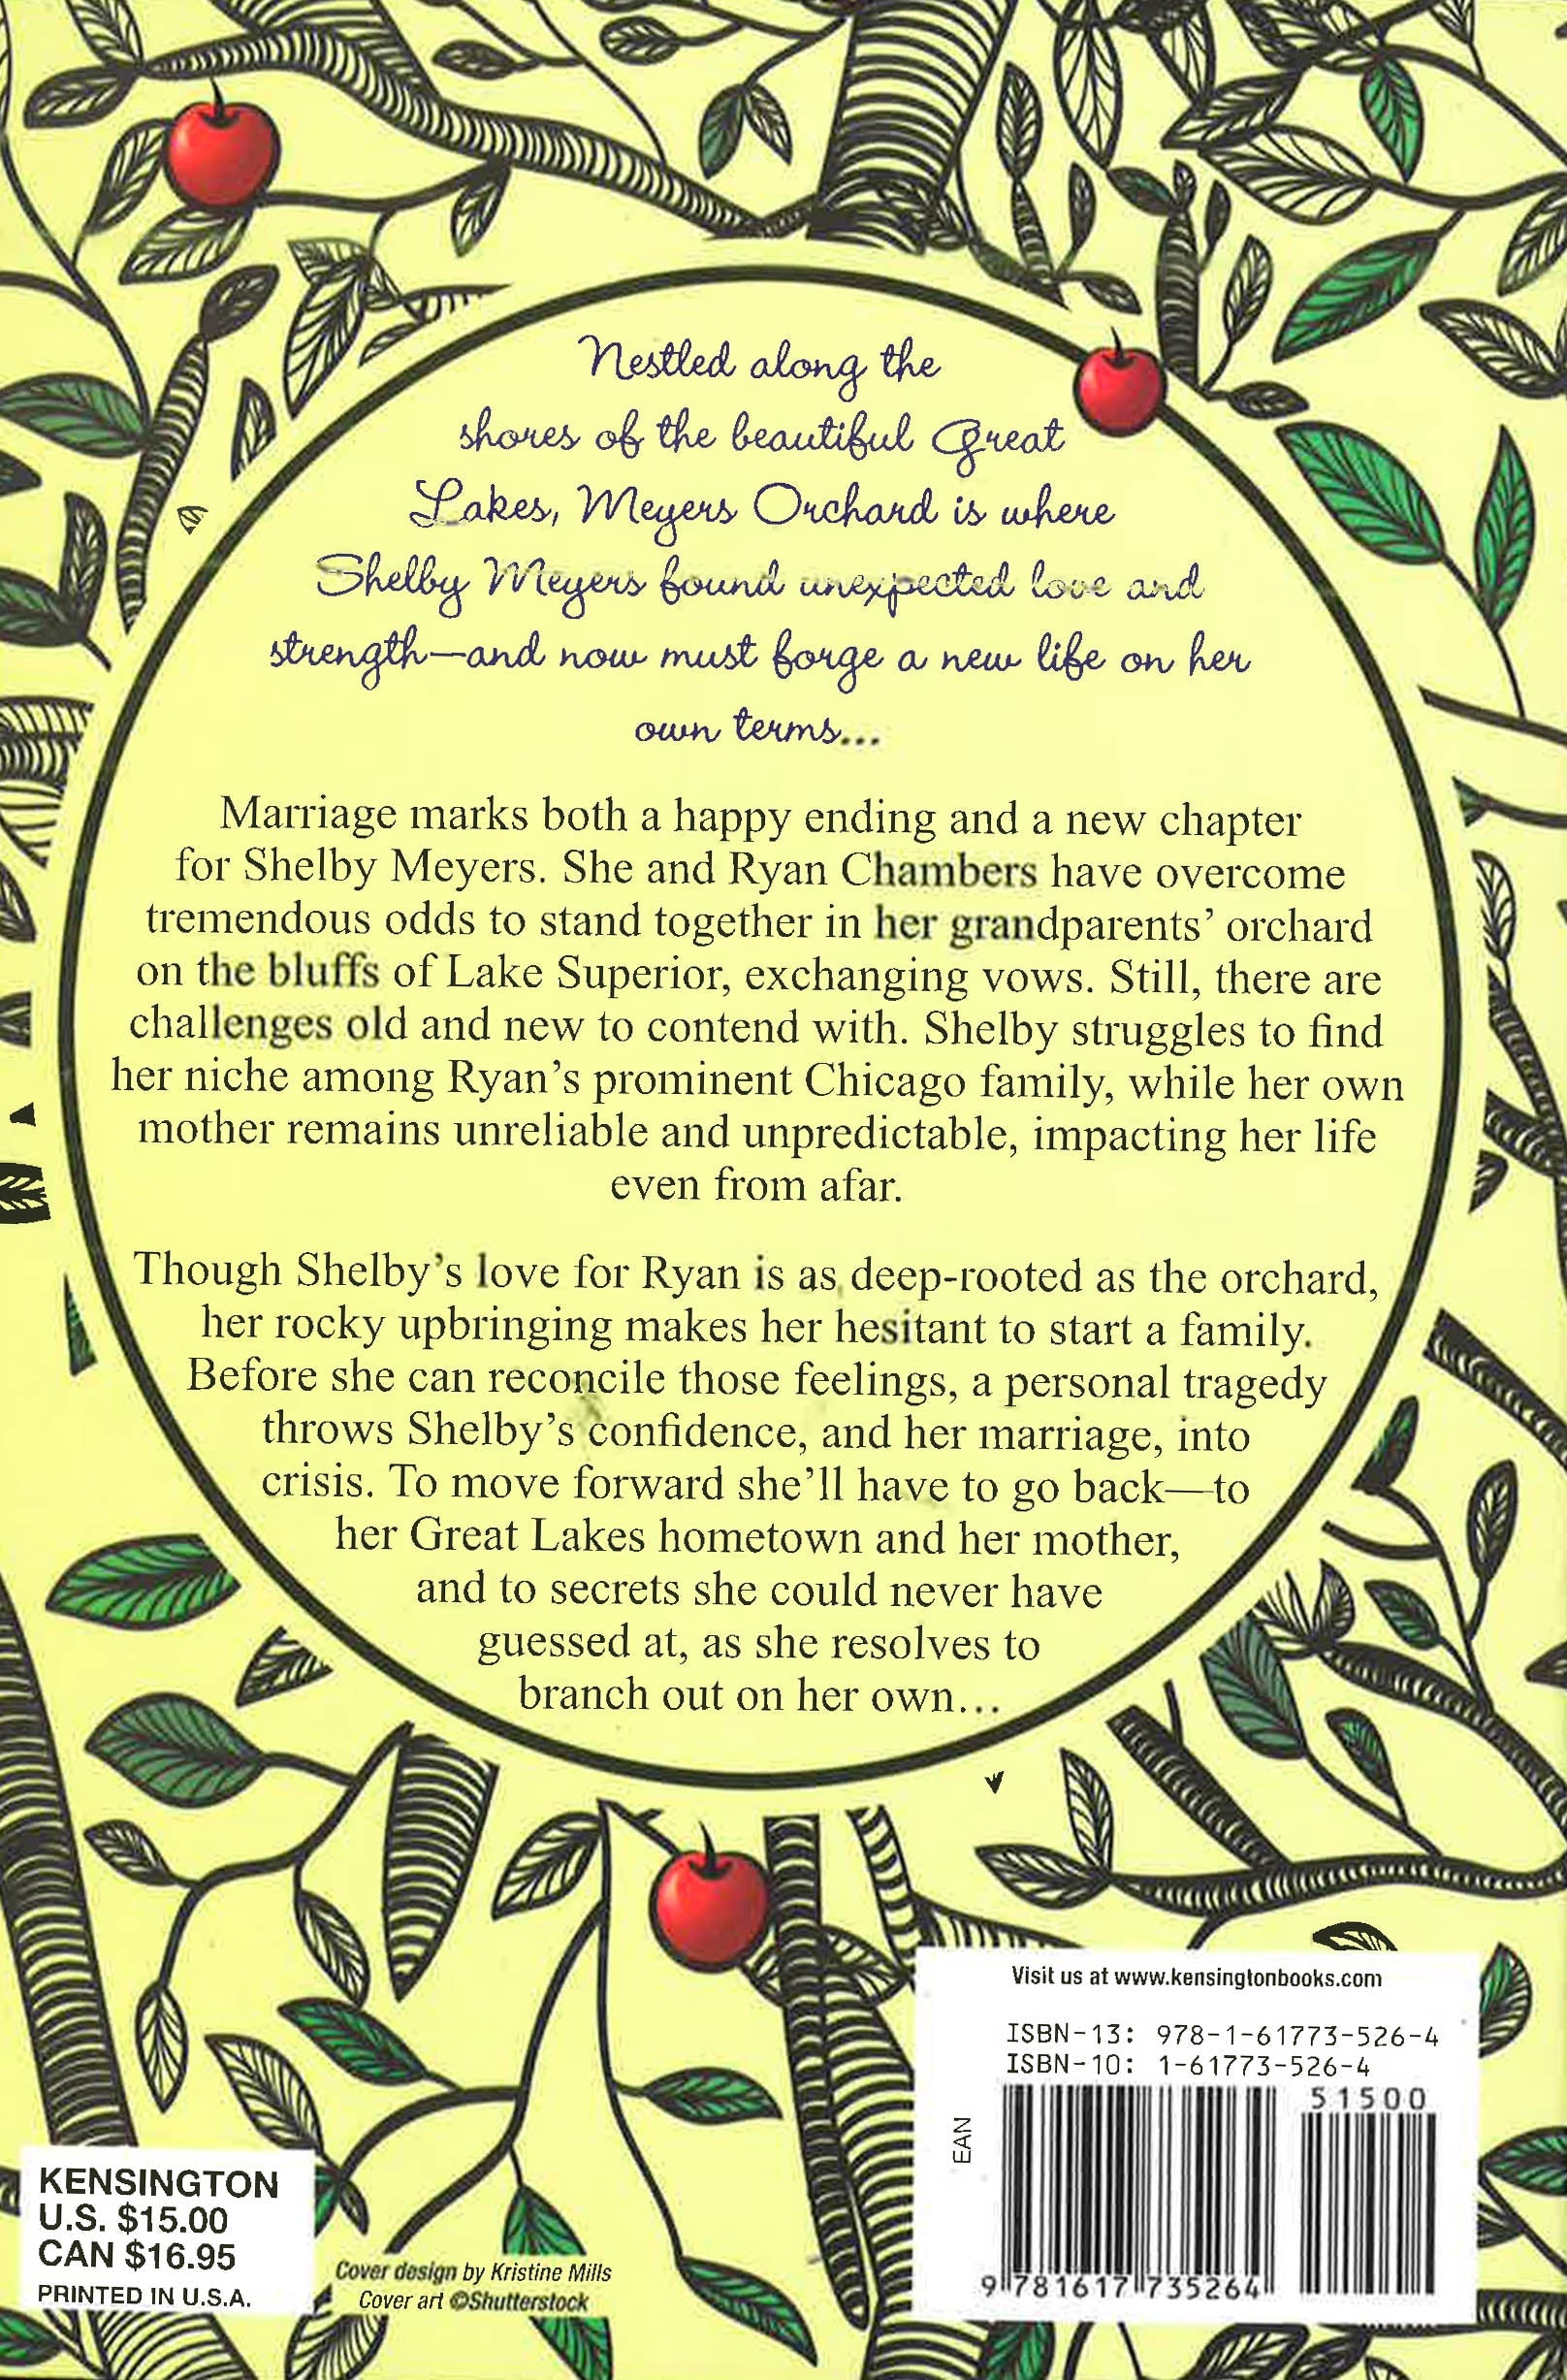 Nestled along the
shores of the beautiful Great
Lakes, Meyers Orchard is where
Shelby Meyers found unexpected love and
strength—and now must forge a new life on her
own terms...
Marriage marks both a happy ending and a new chapter
for Shelby Meyers. She and Ryan Chambers have overcome
tremendous odds to stand together in her grandparents’ orchard
on the bluffs of Lake Superior, exchanging vows. Still, there are
challenges old and new to contend with. Shelby struggles to find
her niche among Ryan’s prominent Chicago family, while her own
mother remains unreliable and unpredictable, impacting her life
even from afar.
Though Shelby’s love for Ryan is as deep-rooted as the orchard,
her rocky upbringing makes her hesitant to start a family.
Before she can reconcile those feelings, a personal tragedy
throws Shelby’s confidence, and her marriage, into
crisis. To move forward she’ll have to go back—to
her Great Lakes hometown and her mother,
and to secrets she could never have
guessed at, as she resolves to
branch out on her own...
Visit us at www.kensingtonbooks.com
ISBN-13: 978-1-61773-526-4
ISBN-10: 1-61773-526-4
51500
EAN
9 781617 735264
KENSINGTON
U.S. $15.00
CAN $16.95
PRINTED IN U.S.A.
Cover design by Kristine Mills
Cover art ©Shutterstock